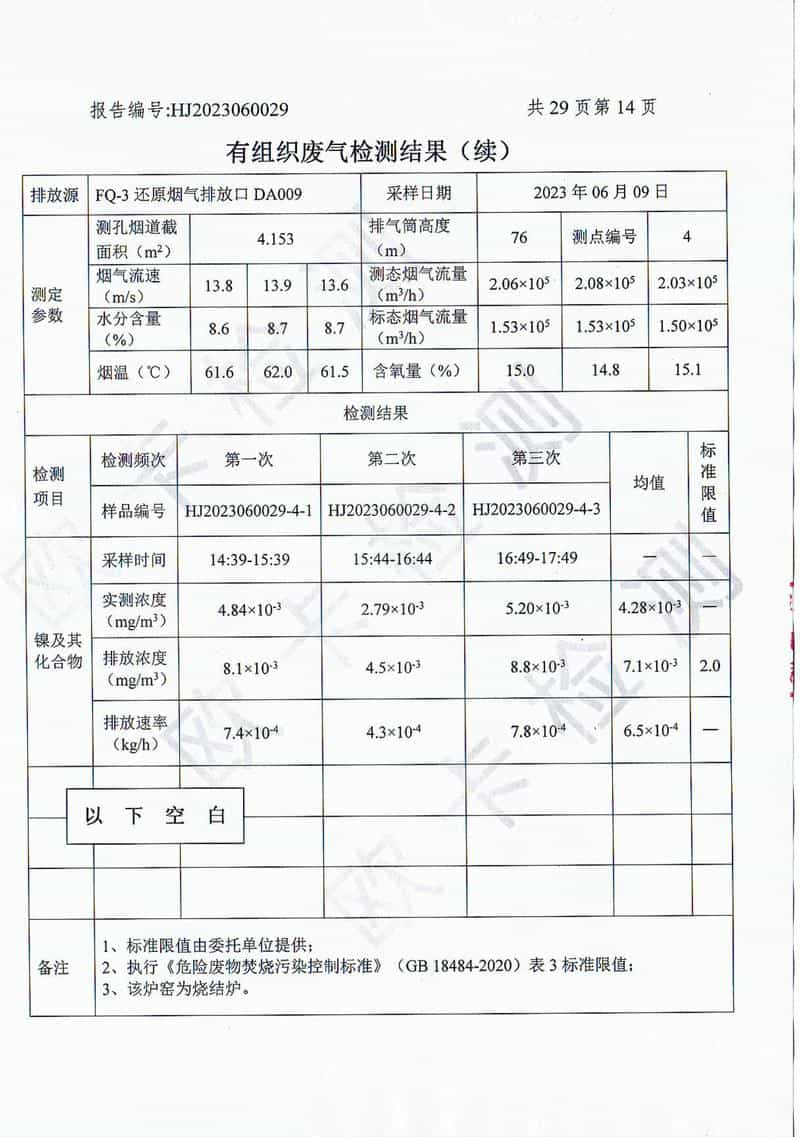 报告编号:HJ2023060029 共 29 页第 14 页
有组织废气检测结果（续）
排放源 FQ-3 还原烟气排放口 DA009 采样日期 2023 年 06 月 09 日
测定参数
测孔烟道截面积（m²） 4.153 排气筒高度（m） 76 测点编号 4
烟气流速（m/s） 13.8 13.9 13.6 测态烟气流量（m³/h） 2.06×10⁵ 2.08×10⁵ 2.03×10⁵
水分含量（%） 8.6 8.7 8.7 标态烟气流量（m³/h） 1.53×10⁵ 1.53×10⁵ 1.50×10⁵
烟温（℃） 61.6 62.0 61.5 含氧量（%） 15.0 14.8 15.1
检测结果
检测项目 检测频次 第一次 第二次 第三次 均值 标准限值
样品编号 HJ2023060029-4-1 HJ2023060029-4-2 HJ2023060029-4-3
镍及其化合物
采样时间 14:39-15:39 15:44-16:44 16:49-17:49 — —
实测浓度（mg/m³） 4.84×10⁻³ 2.79×10⁻³ 5.20×10⁻³ 4.28×10⁻³ —
排放浓度（mg/m³） 8.1×10⁻³ 4.5×10⁻³ 8.8×10⁻³ 7.1×10⁻³ 2.0
排放速率（kg/h） 7.4×10⁻⁴ 4.3×10⁻⁴ 7.8×10⁻⁴ 6.5×10⁻⁴ —
以 下 空 白
备注
1、标准限值由委托单位提供；
2、执行《危险废物焚烧污染控制标准》（GB 18484-2020）表 3 标准限值；
3、该炉窑为烧结炉。
欧卡检测
欧卡检测
欧卡检测